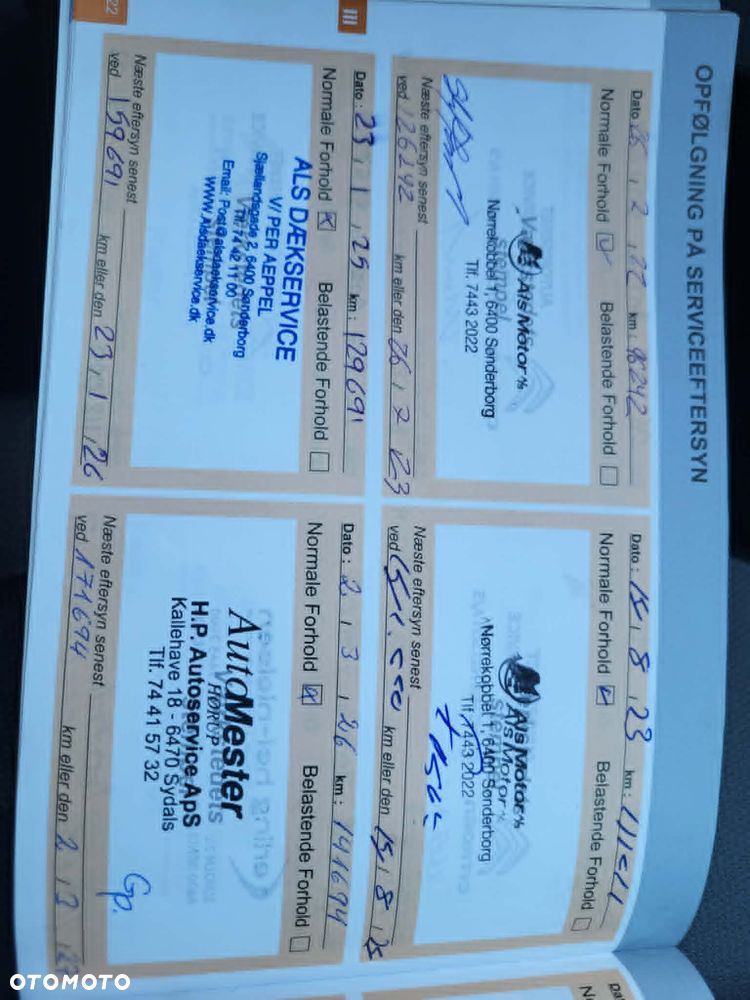 OPFØLGNING PÅ SERVICEEFTERSYN
Dato: 26, 2, 22 km: 96242
Normale Forhold Belastende Forhold
Als Motor's
Nørrekobbel 1, 6400 Sønderborg
Tlf. 7443 2022
Næste eftersyn senest
ved 126242 km eller den 26, 2 23
Dato: 15, 8, 23 km:
Normale Forhold Belastende Forhold
Als Motor's
Als Motor's
Nørrekobbel 1, 6400 Sønderborg
Tlf. 7443 2022
Næste eftersyn senest
ved km eller den 15, 8, 25
III
Dato: 23, 1, 25 km: 129691
Normale Forhold Belastende Forhold
ALS DÆKSERVICE
V/ PER AEPPEL
Sjællandsgade 2, 6400 Sønderborg
Tlf. 74 42 11 00
Email: Post@alsdaekservice.dk
WWW.Alsdaekservice.dk
Næste eftersyn senest
ved 159691 km eller den 23, 1, 26
Dato: 2, 3, 26 km: 141694
Normale Forhold Belastende Forhold
AutoMester
HØRUP
H.P. Autoservice ApS
Kallehave 18 - 6470 Sydals
Tlf. 74 41 57 32
Gp.
Næste eftersyn senest
ved 171694 km eller den 2, 3, 27
22
OTOMOTO